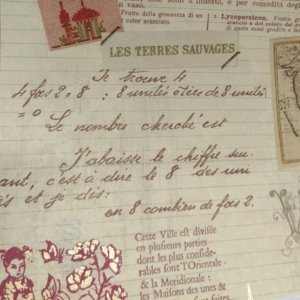 Frutto della grossezza di un
color aranciato.
in vaso.
e per comodità degli
1. Lycopersicon. Frutto
LES TERRES SAUVAGES
Je trouve 4
4 fois 2 = 8 : 8 unités ôtées de 8 unités
= 0
Le nombre cherché est
J'abaisse le chiffre sui
vant, c'est à dire le 8 des uni
tés et je dis:
en 8 combien de fois 2.
Cette Ville est divisée
en plusieurs parties
dont les plus considé-
rables sont l'Orientale
& la Meridionale:
les Maisons des unes &